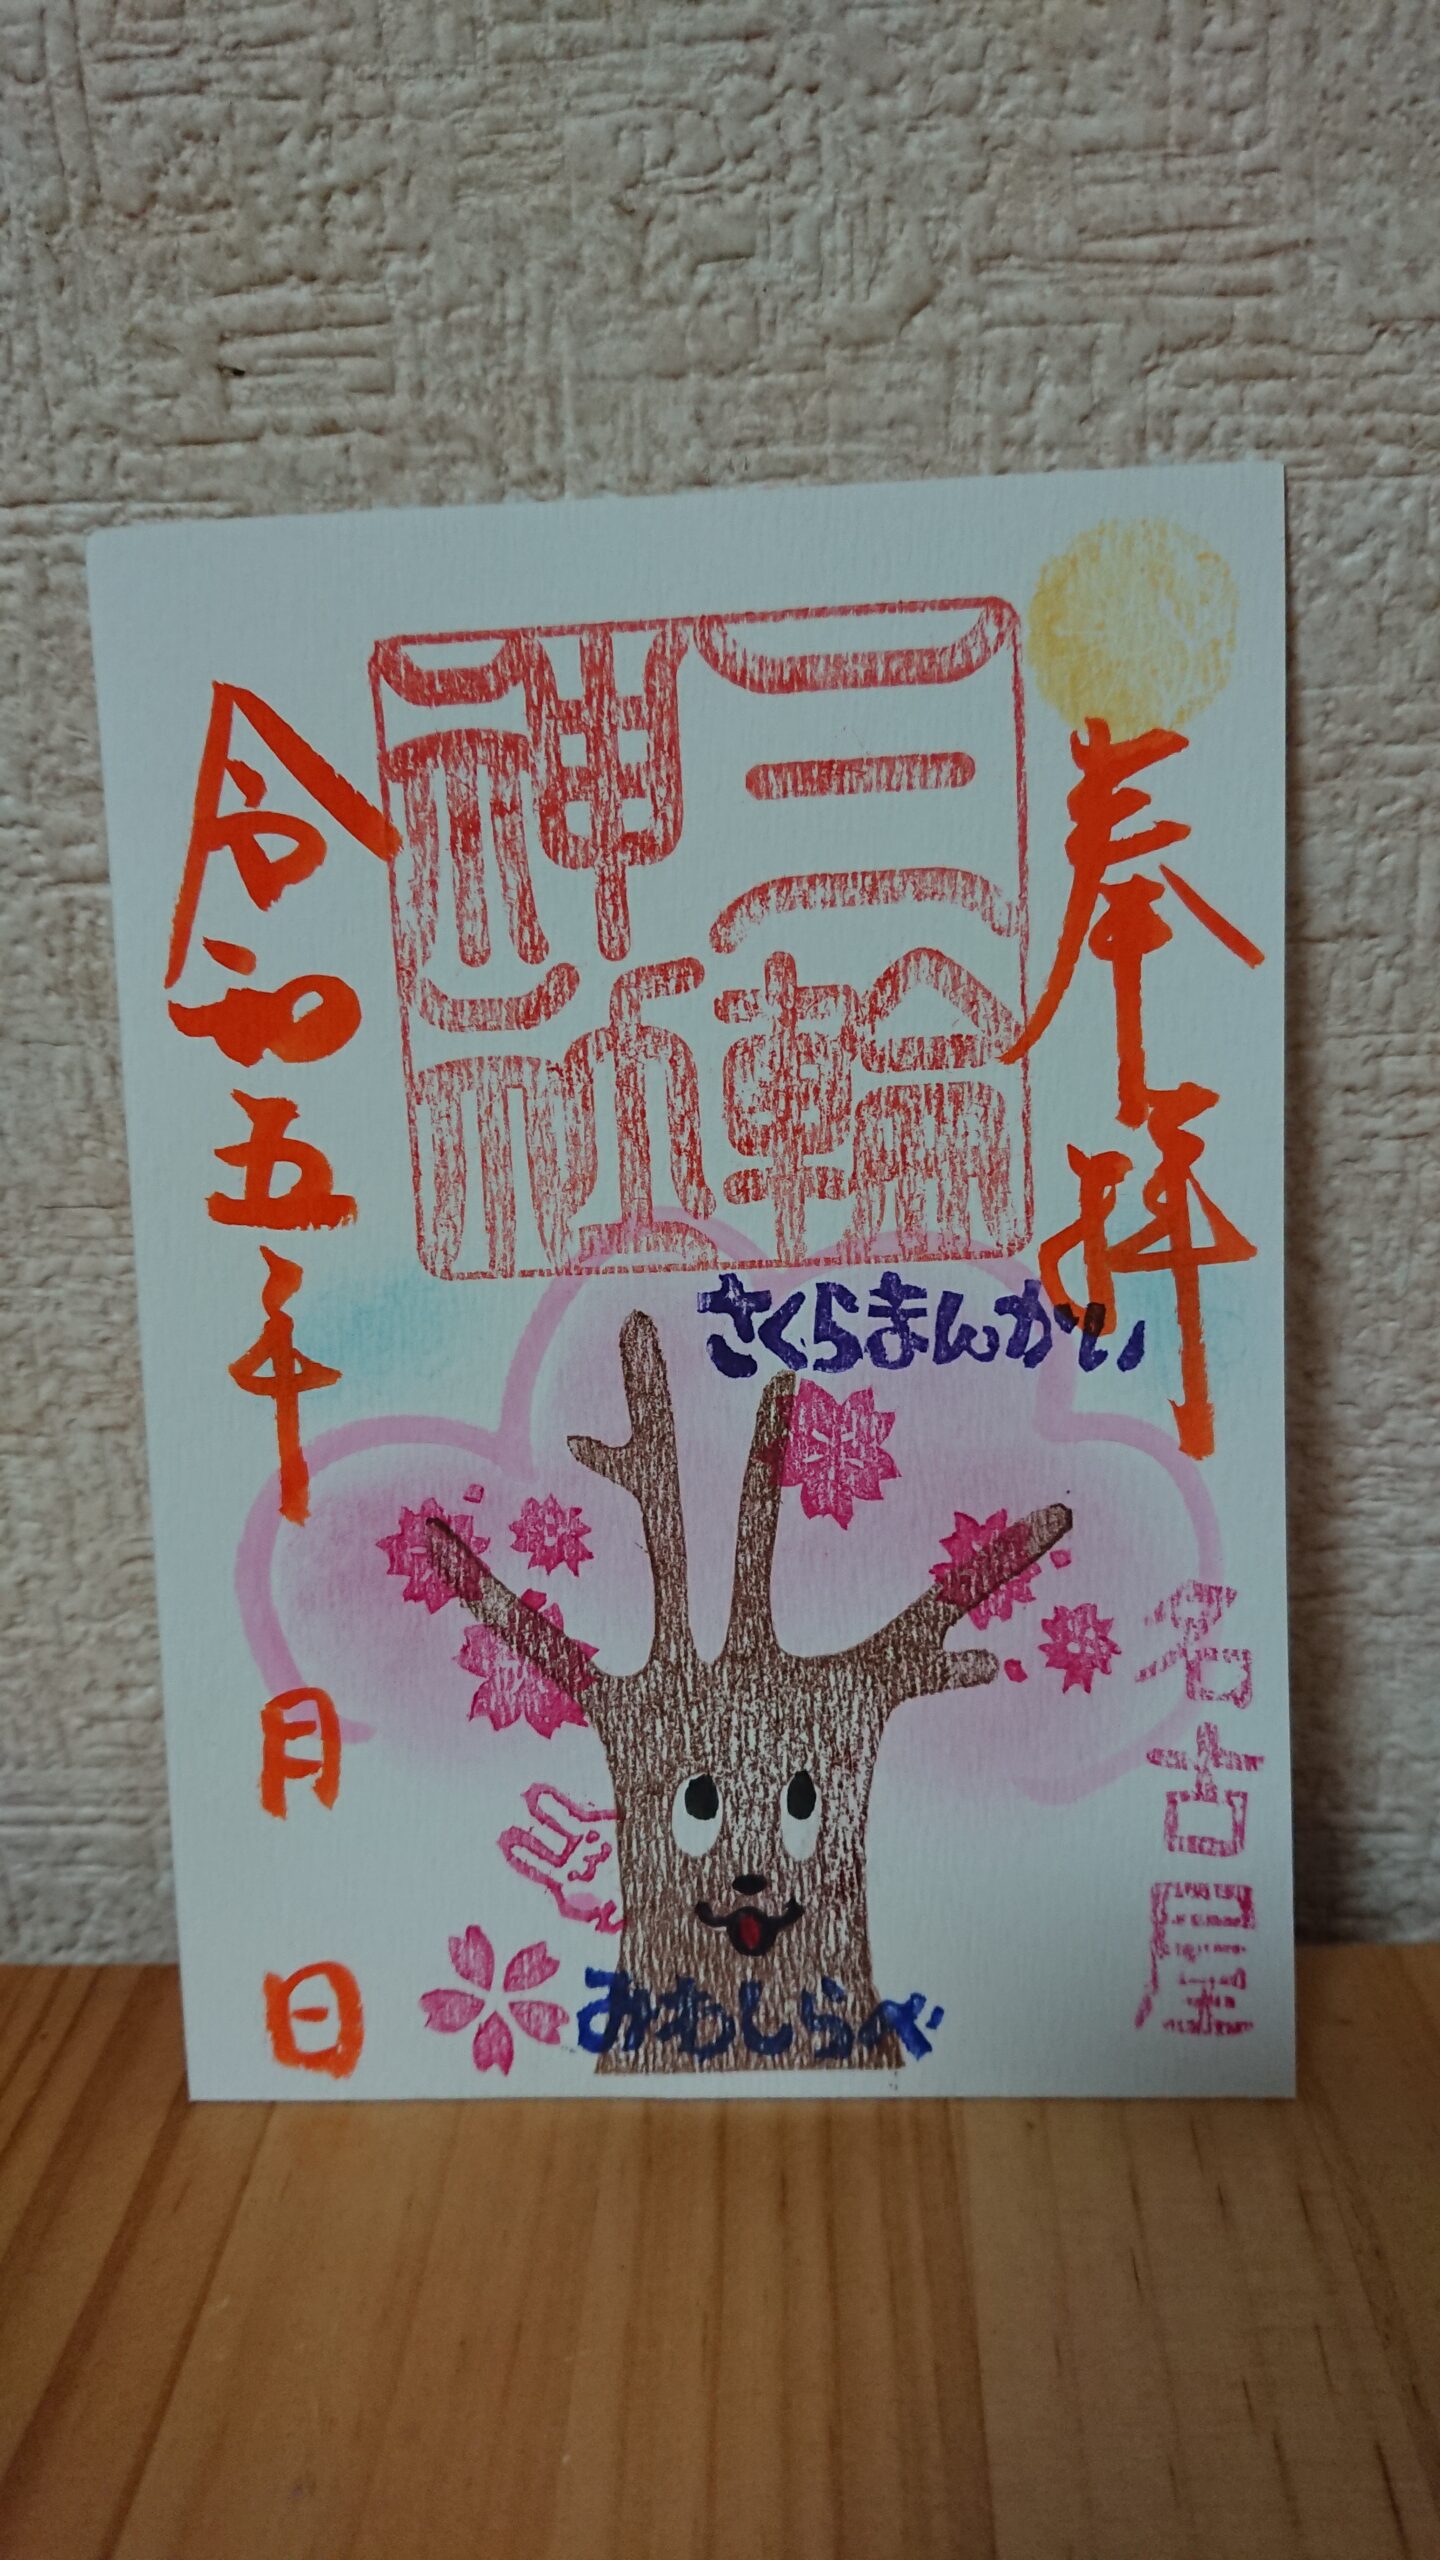 奉拝
三輪
神社
さくらまんかい
名古屋
みもしらべ
令和五年
月
日